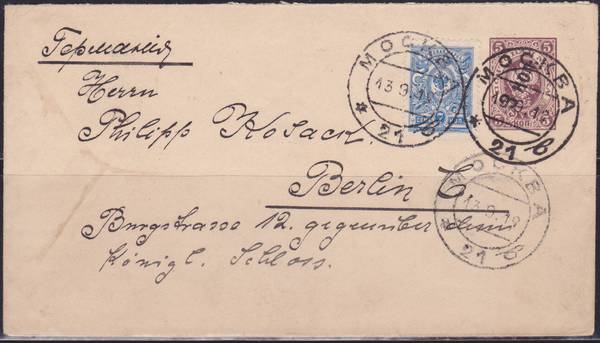 Германия
Herrn
Philipp Kosack.
Berlin C
Burgstrasse 12. gegenüber dem
Königl. Schloss.
МОСКВА
13.9.
21
МОСКВА
21
5 5
МОСКВА
13.9.
21